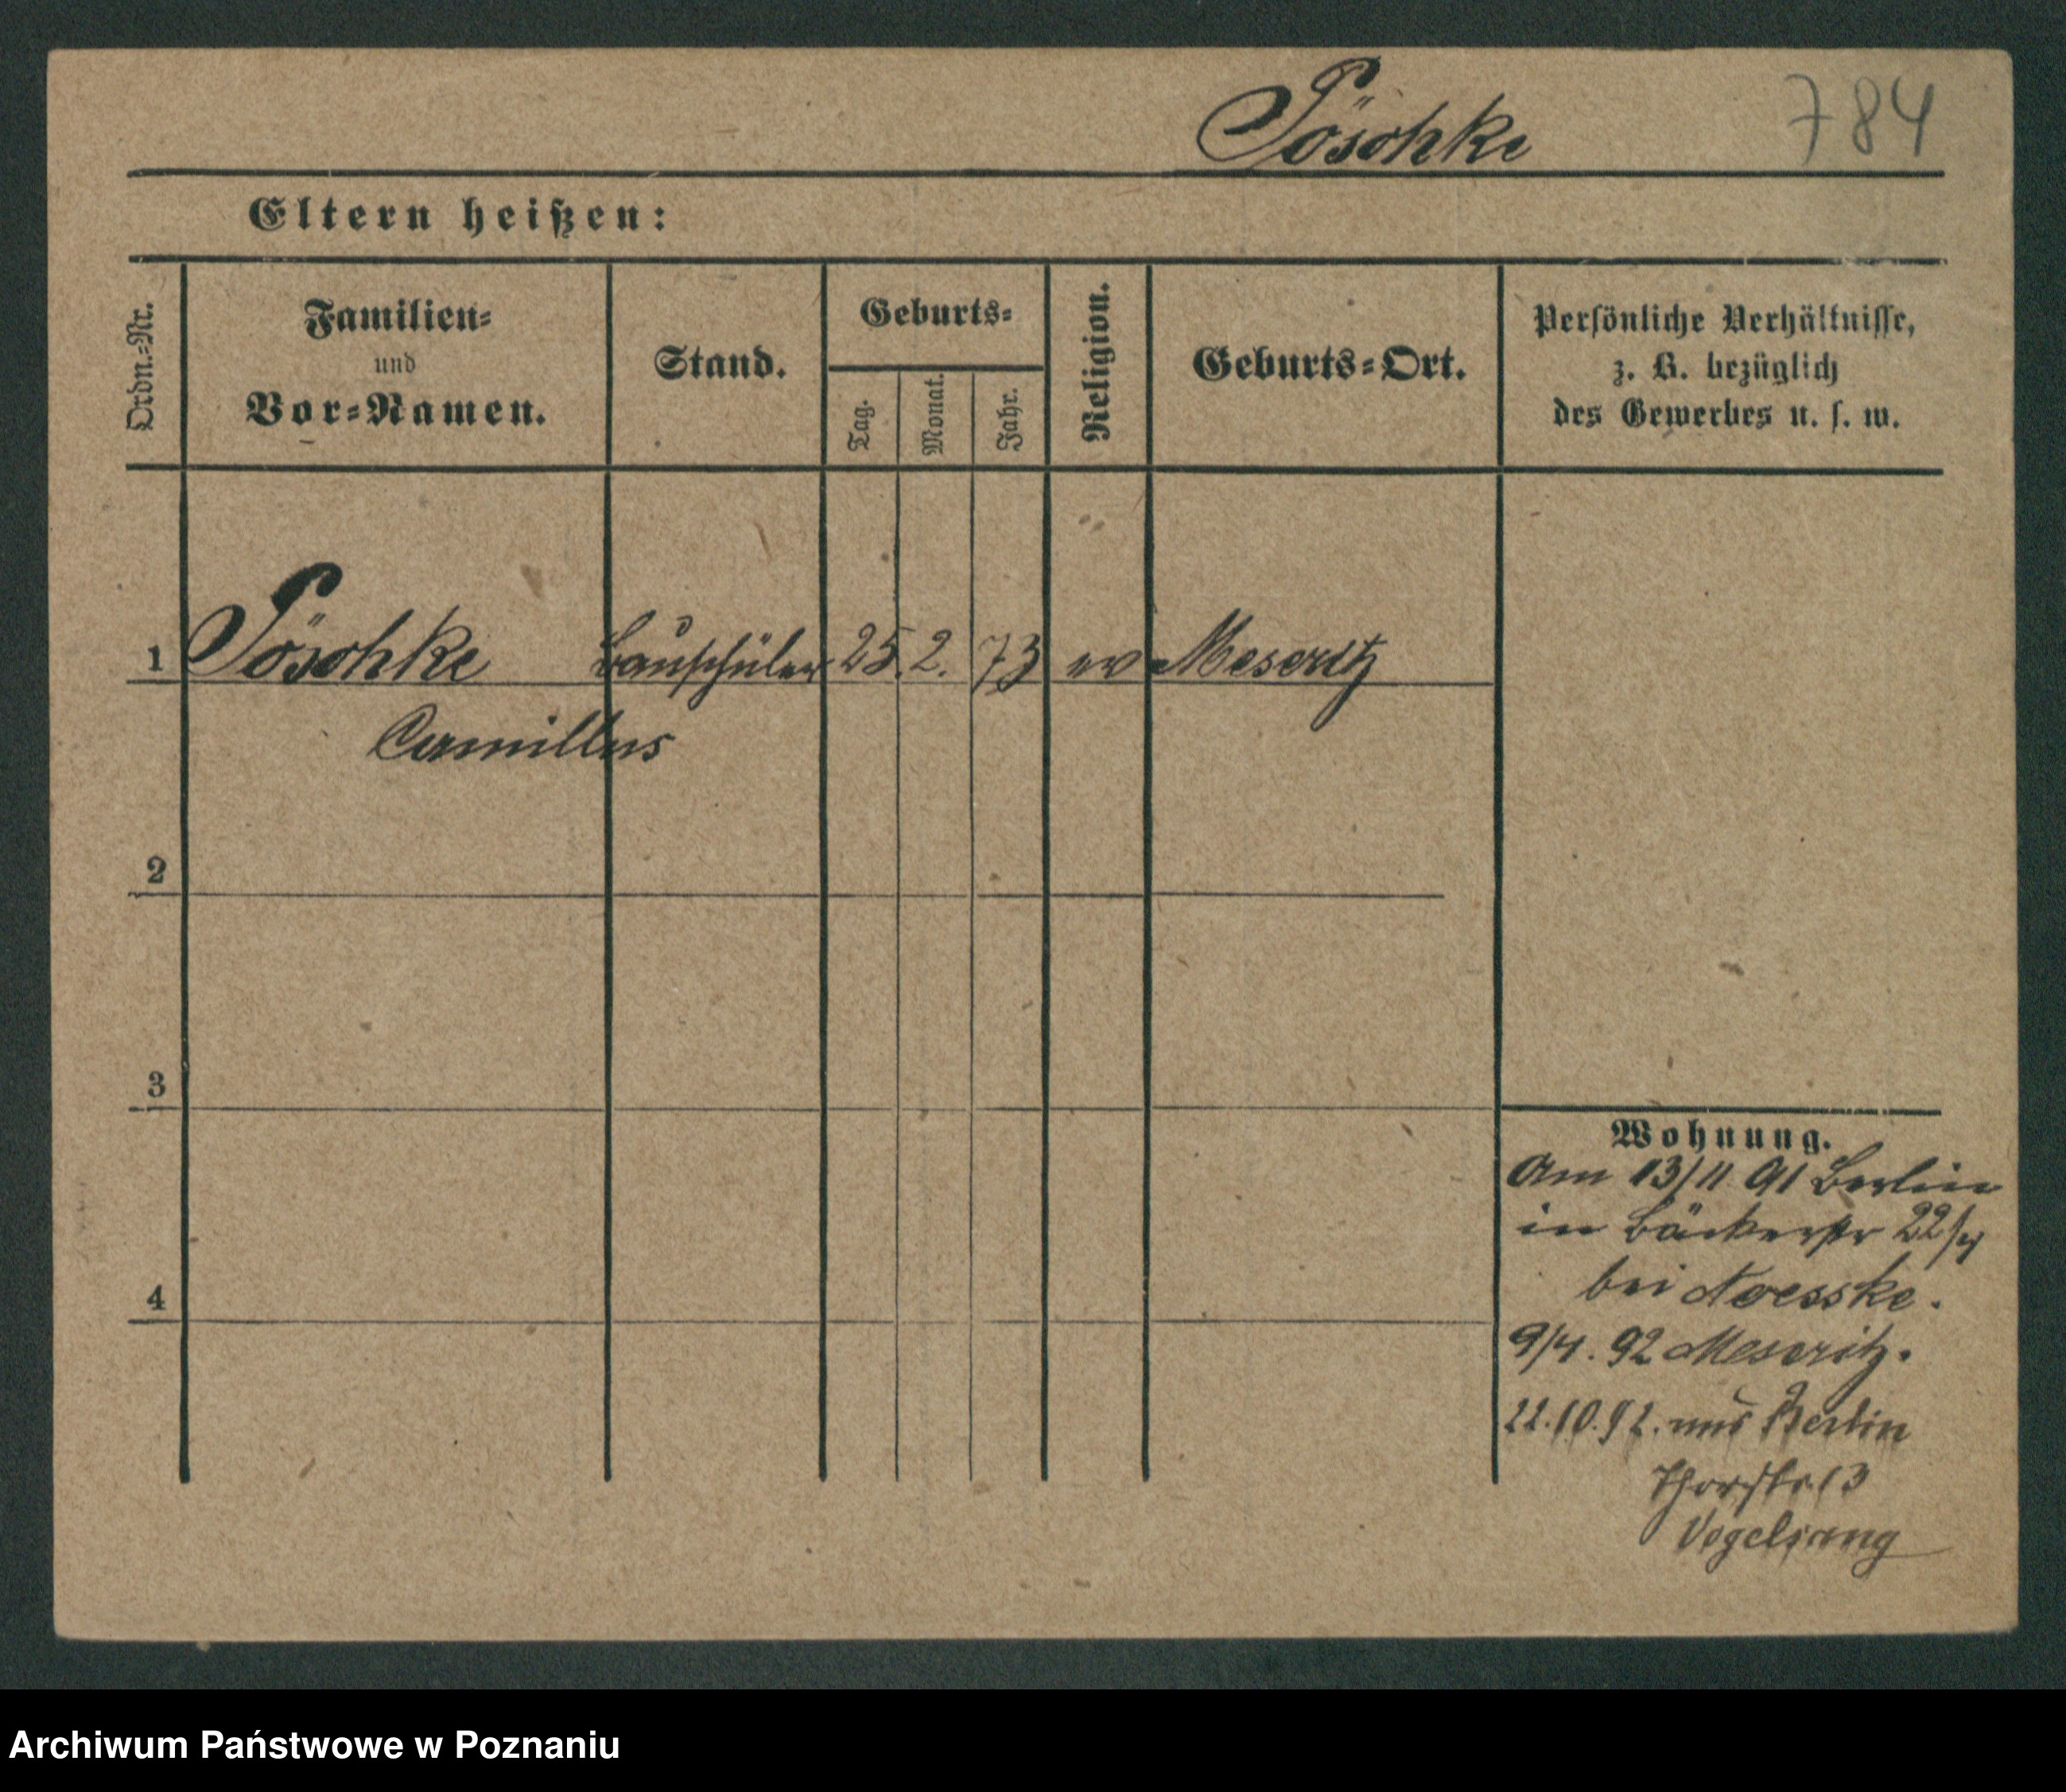 Pöschke 784
Eltern heißen:
Ordn.=Nr.
Familien=
und
Vor=Namen.
Stand.
Geburts=
Tag.
Monat.
Jahr.
Religion.
Geburts=Ort.
Persönliche Verhältnisse,
z. B. bezüglich
des Gewerbes u. s. w.
1 Pöschke Bauschüler 25. 2. 73 ev Meseritz
Camillus
2
3
4
Wohnung.
Am 13/11 91 Berlin
in Bäckerstr 22/
bei Noesske.
9/4. 92 Meseritz.
22.10.92. aus Berlin
Thorstr. 13
Vogelsang
Archiwum Państwowe w Poznaniu